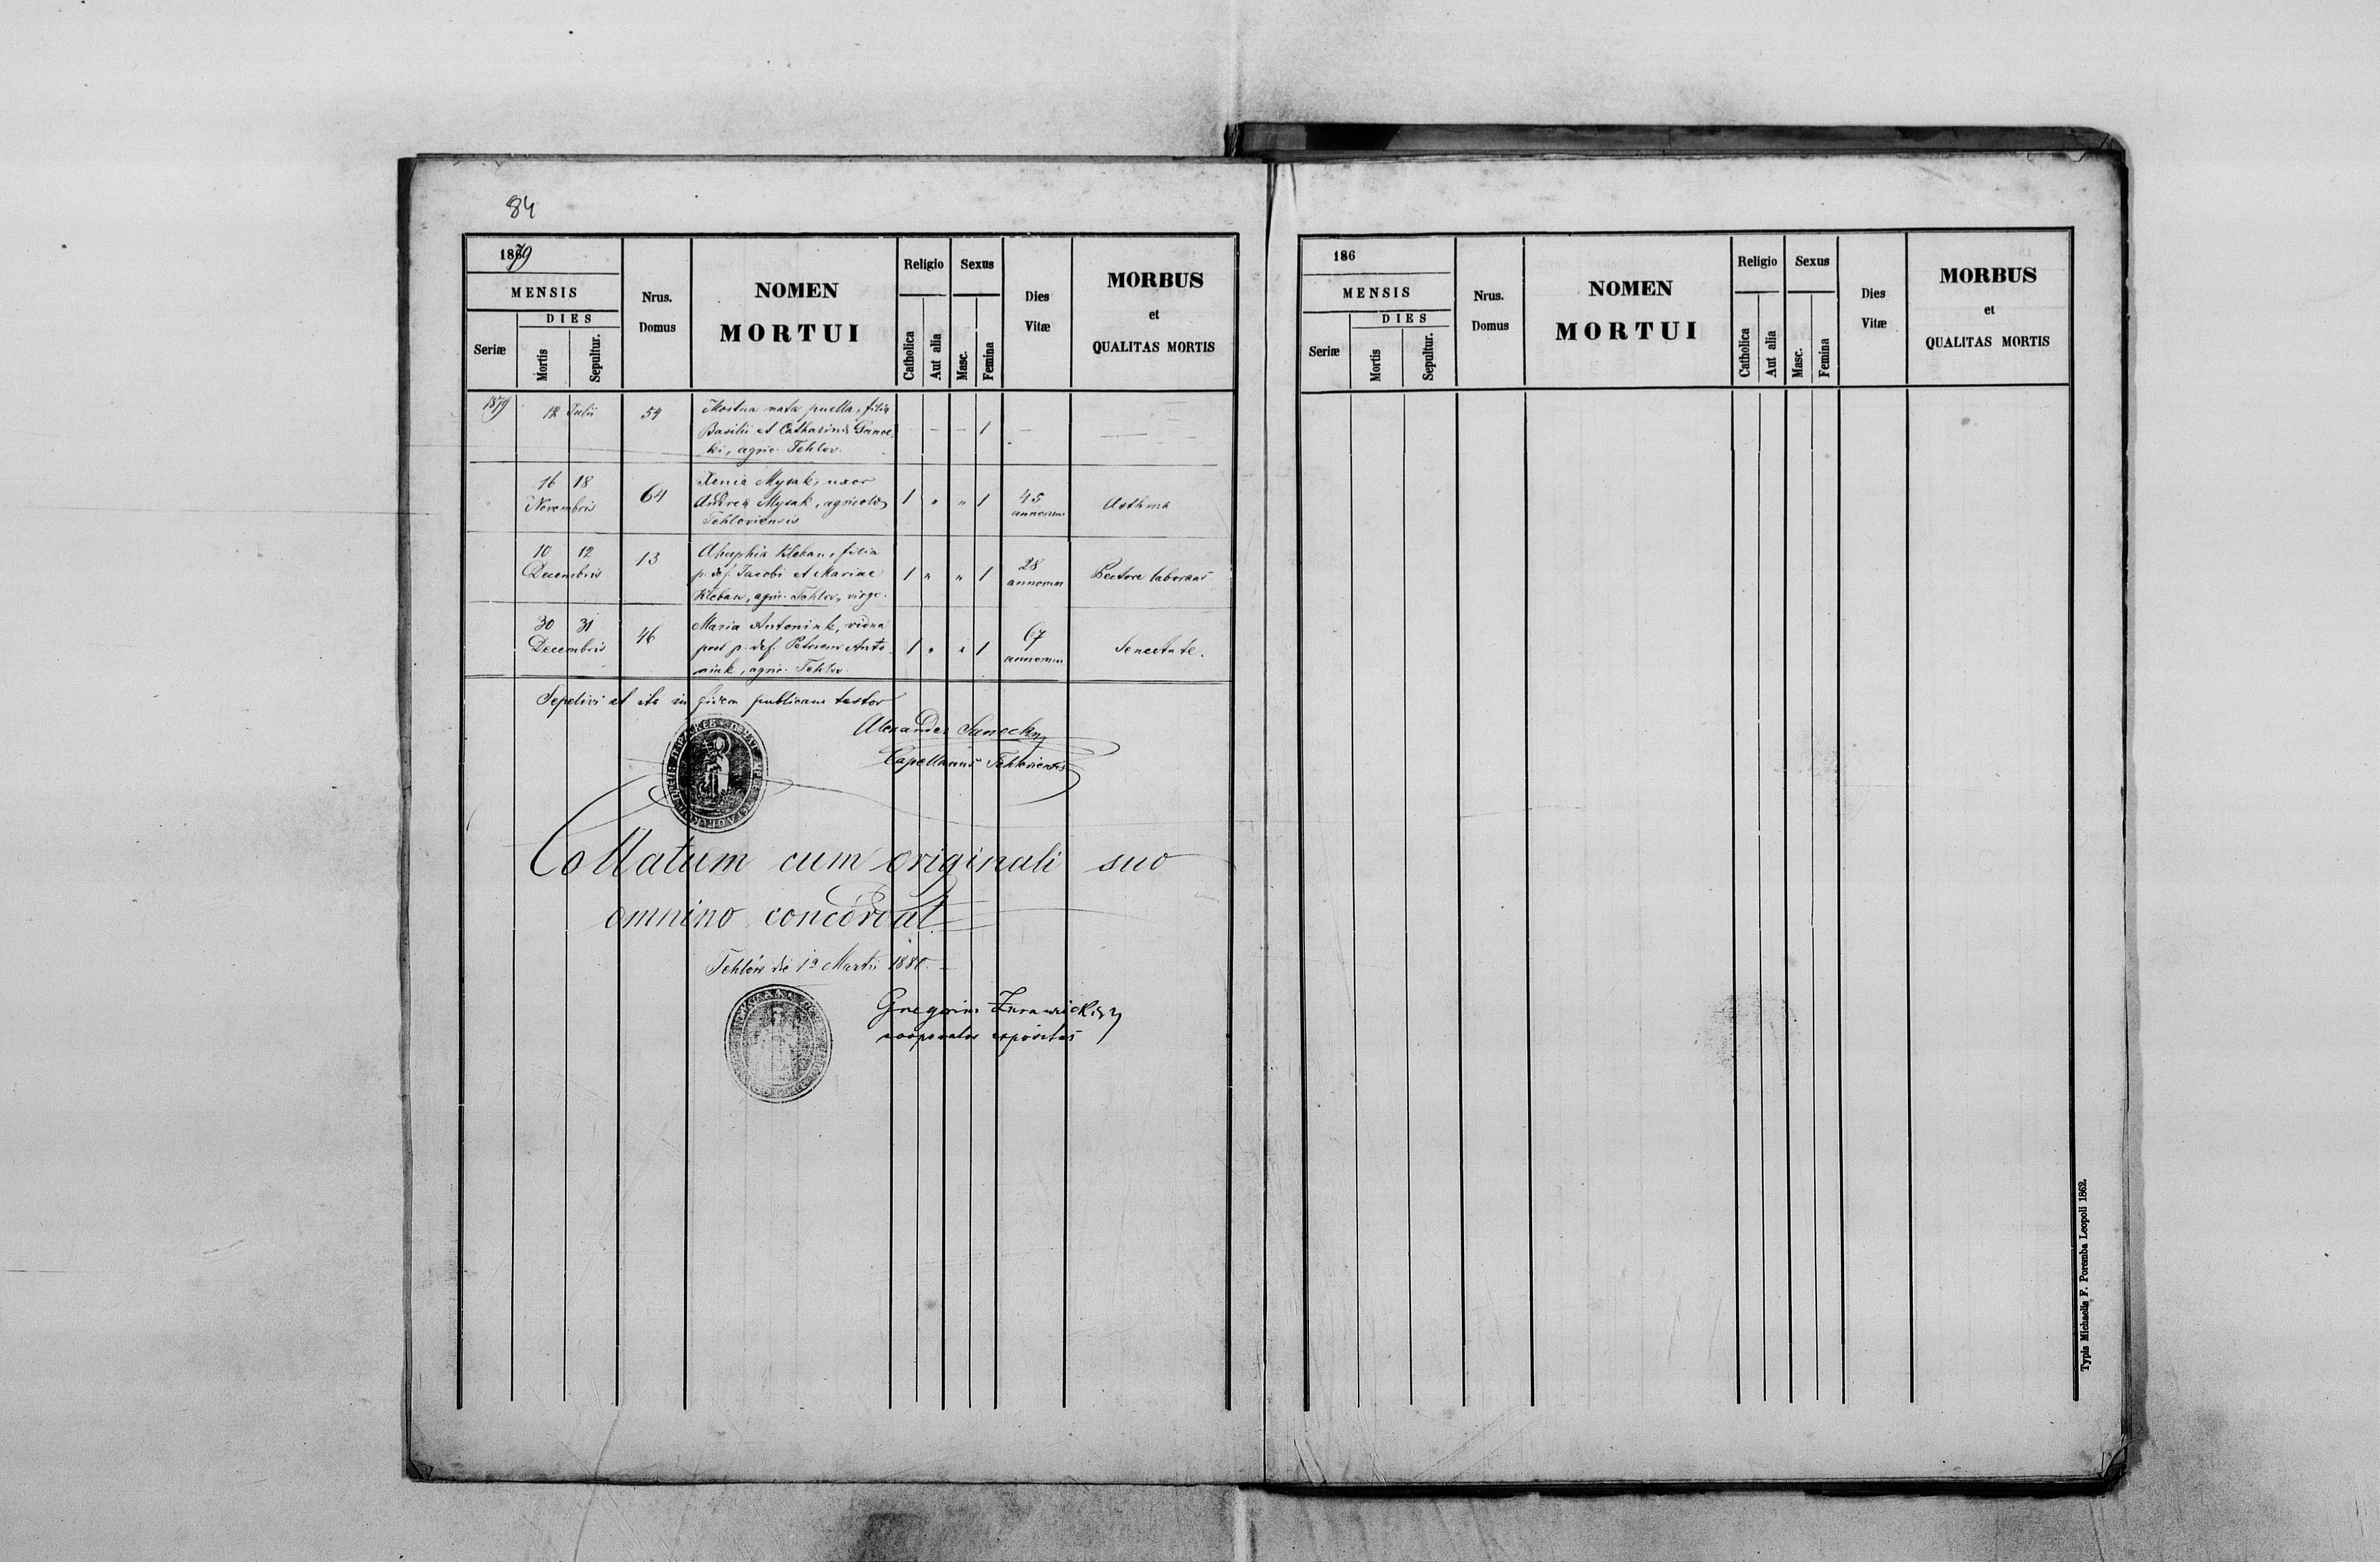 84
1879
MENSIS
DIES
Seriæ
Mortis
Sepultur.
Nrus.
Domus
NOMEN
MORTUI
Religio
Catholica
Aut alia
Sexus
Masc.
Femina
Dies
Vitæ
MORBUS
et
QUALITAS MORTIS
1879 12 Julii 54 Mortua nata puella, filia
Basilii et Catharinæ
agric. Tehlov. – – 1 – —
16 18
Novembris 64 Xenia Mysak, uxor
Andreæ Mysak, agricolæ
Tehloviensis 1 " " 1 45
annorum Asthma
10 12
Decembris 13 Ahaphia Kleban, filia
p. def. Jacobi et Mariae
Kleban, agric. Tehlov, virgo. 1 " " 1 28
annorum Pectore laborans
30 31
Decembris 46 Maria Antoniuk, vidua
post p. def. Petrum Anto-
niuk, agric. Tehlov. 1 " " 1 67
annorum Senectute.
Sepelivi et ita in fidem publicam testor
Alexander Sanocky
Capellanus Tehloviensis
Collatum cum originali suo
omnino concordat
Tehlów die 1ª Martii 1880.
Gregorius Zurawiecki
cooperator expositus
186
MENSIS
DIES
Seriæ
Mortis
Sepultur.
Nrus.
Domus
NOMEN
MORTUI
Religio
Catholica
Aut alia
Sexus
Masc.
Femina
Dies
Vitæ
MORBUS
et
QUALITAS MORTIS
Typis Michaelis F. Poremba Leopoli 1862.